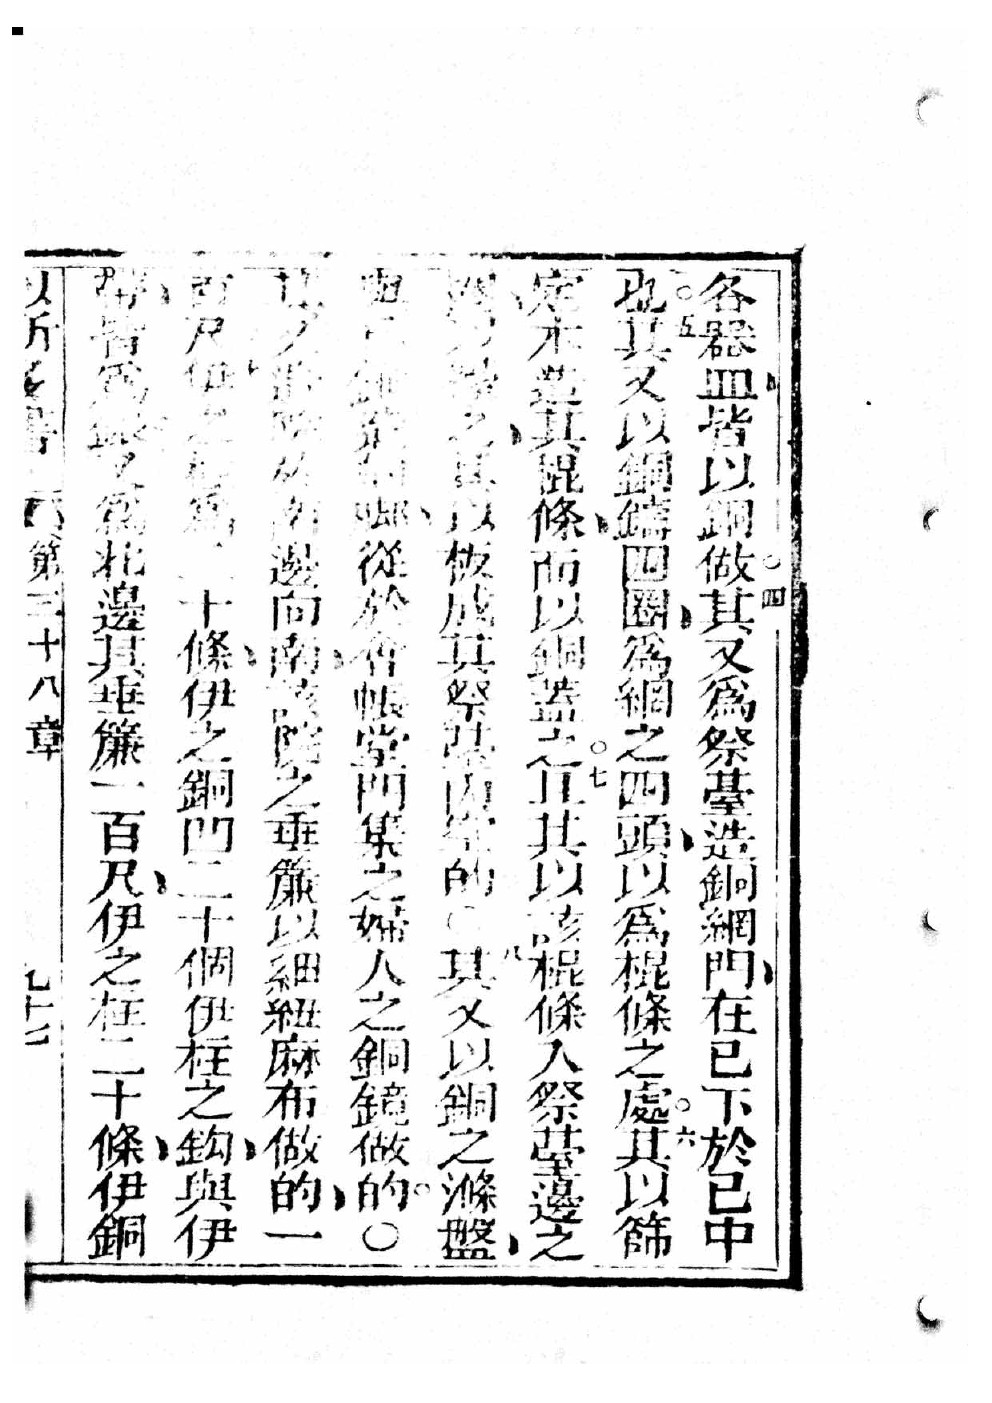 各器皿皆以銅做○四其又爲祭臺造銅網門在已下於已中
也○五其又以銅鑄四圈爲網之四頭以爲棍條之處○六其以篩
定木造其棍條而以銅蓋之○七且其以該棍條入祭臺邊之
之其以板成其祭臺內空的○八其又以銅之滌盤
從於會帳堂門集之婦人之銅鏡做的○
邊向南該院之垂簾以細紐麻布做的一
百尺伊之柱爲二十條伊之銅凹二十個伊柱之鈎與伊
帶皆爲銀又爲北邊其垂簾一百尺伊之柱二十條伊銅
第三十八章